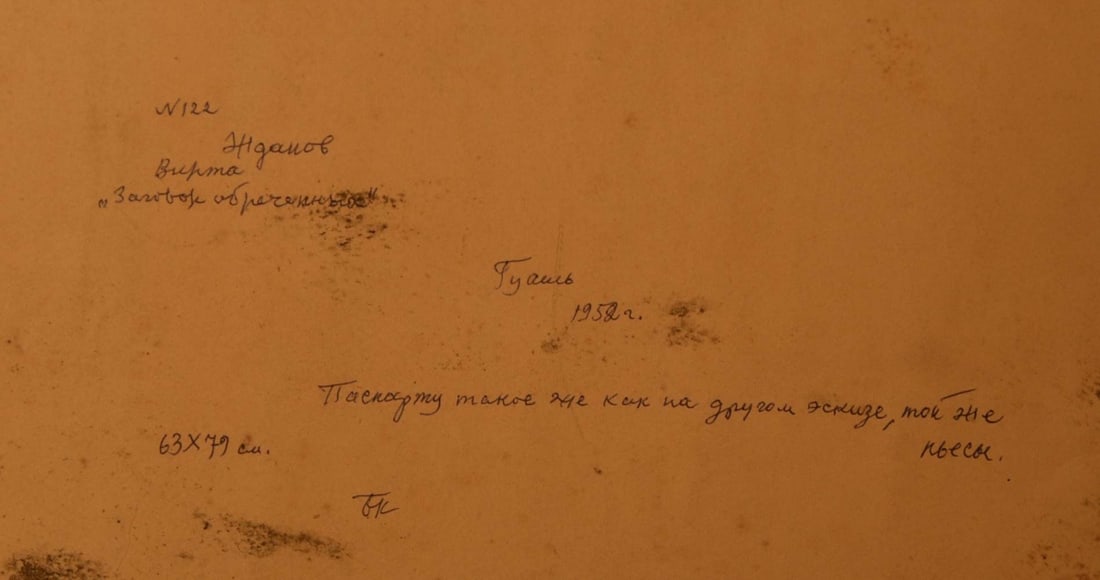 N122
Жданов
Вирта
„Заговор обреченных"
Гуашь
1952 г.
Паспарту такое же как на другом эскизе, той же
пьесы.
63X79 см.
БК